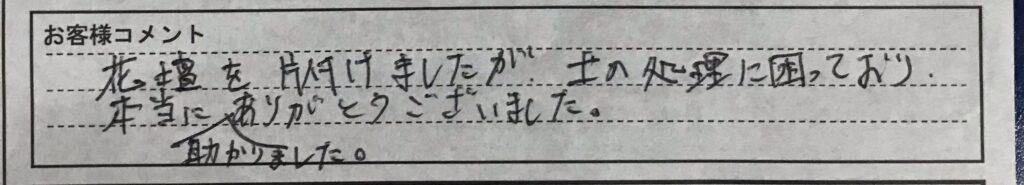 お客様コメント
花壇を片付けましたが、土の処理に困っており、
本当にありがとうございました。
助かりました。